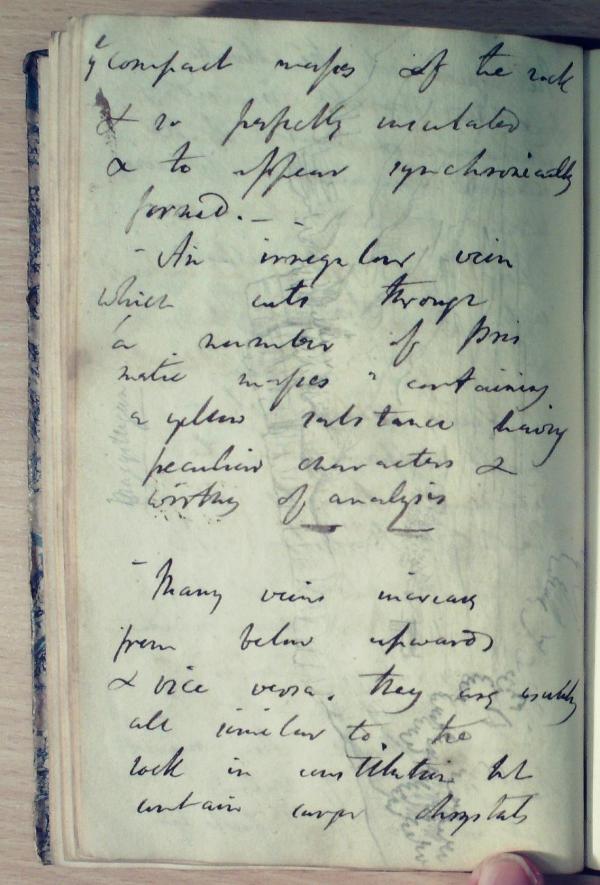 compact masses of the rock
& so perfectly insulated
& to appear synchronically
formed. –
- An irregular vein
which cuts through
a number of Pris
matic masses containing
a yellow substance having
peculiar characters &
worthy of analysis
- Many veins increase
from below upwards
& vice versa. They are usually
all similar to the
rock in constitution but
contain larger chrystals